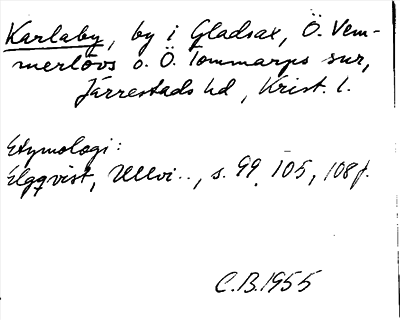 Karlaby, by i Gladsax, Ö. Vem-
merlövs o. Ö. Tommarps snr,
Järrestads hd, Krist. l.
Etymologi:
Elgqvist, Ullvi.., s. 99, 105, 108 f.
C.B. 1955